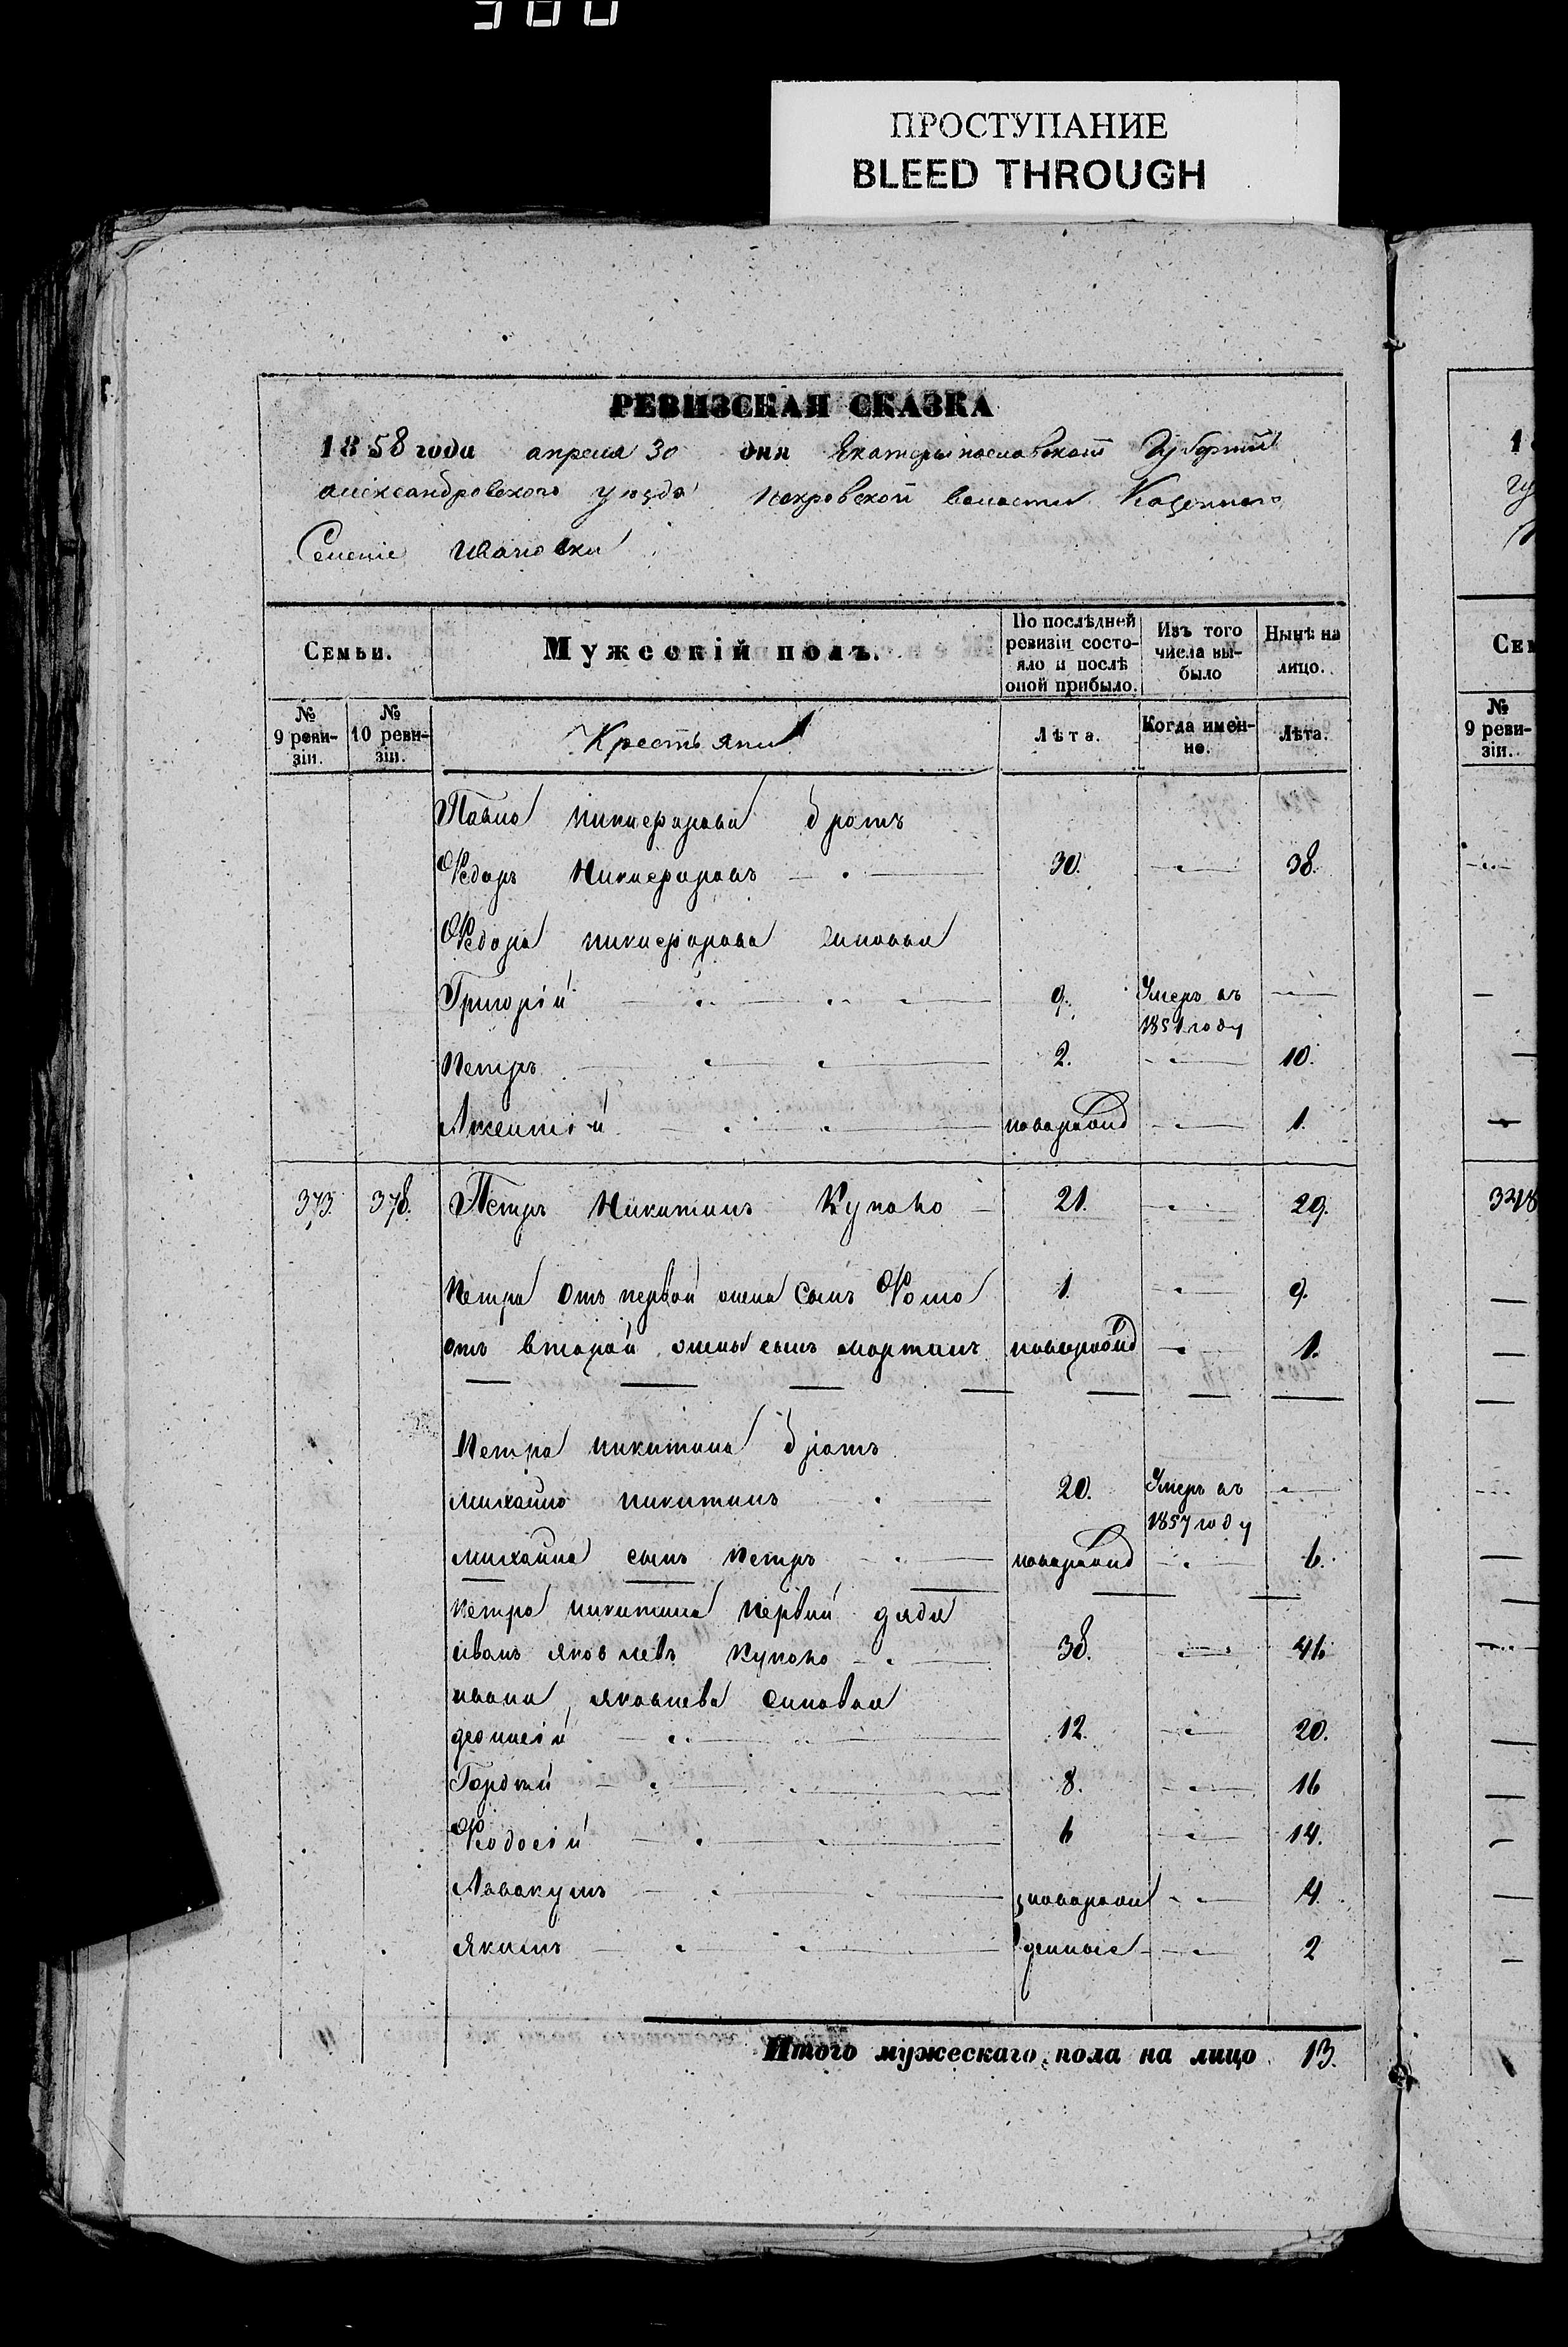 ПРОСТУПАНИЕ
BLEED THROUGH
РЕВИЗСКАЯ СКАЗКА
1858 года апреля 30 дня Екатеринославской Губернии
Александровского уезда Покровской волости Казенного
Селенiе Ивановки
Семьи. Мужескій полъ. По послѣдней ревизіи состояло и послѣ оной прибыло. Изъ того числа выбыло Нынѣ на лицо.
№ 9 ревизіи. № 10 ревизіи. Крестьяни Лѣта. Когда именно. Лѣта.
Павла никифорова братъ
Федоръ Никифоровъ 30. 38.
Федора никифорова синовья
Григорій 9. Умеръ въ 1851 году
Петръ 2. 10.
Аксентій новорожд 1.
373. 378. Петръ Никитинъ Куноко 21. 29.
Петра отъ первой жены сынъ Фома 1. 9.
отъ второй жены сынъ мартинъ новорожд 1.
Петра никитина братъ
михайло никитинъ 20. Умеръ въ 1857 году
михайла сынъ Петръ новорожд 6.
Петра никитина Первий дядя
иванъ яковлевъ Куноко 38. 46
ивана яковлева синовья
деонисій 12. 20.
Гордѣй 8. 16
Феодосій 6 14.
Аввакумъ новорож 4.
Якимъ денные 2
Итого мужескаго пола на лицо 13.
Сем
№ 9 ревизіи.